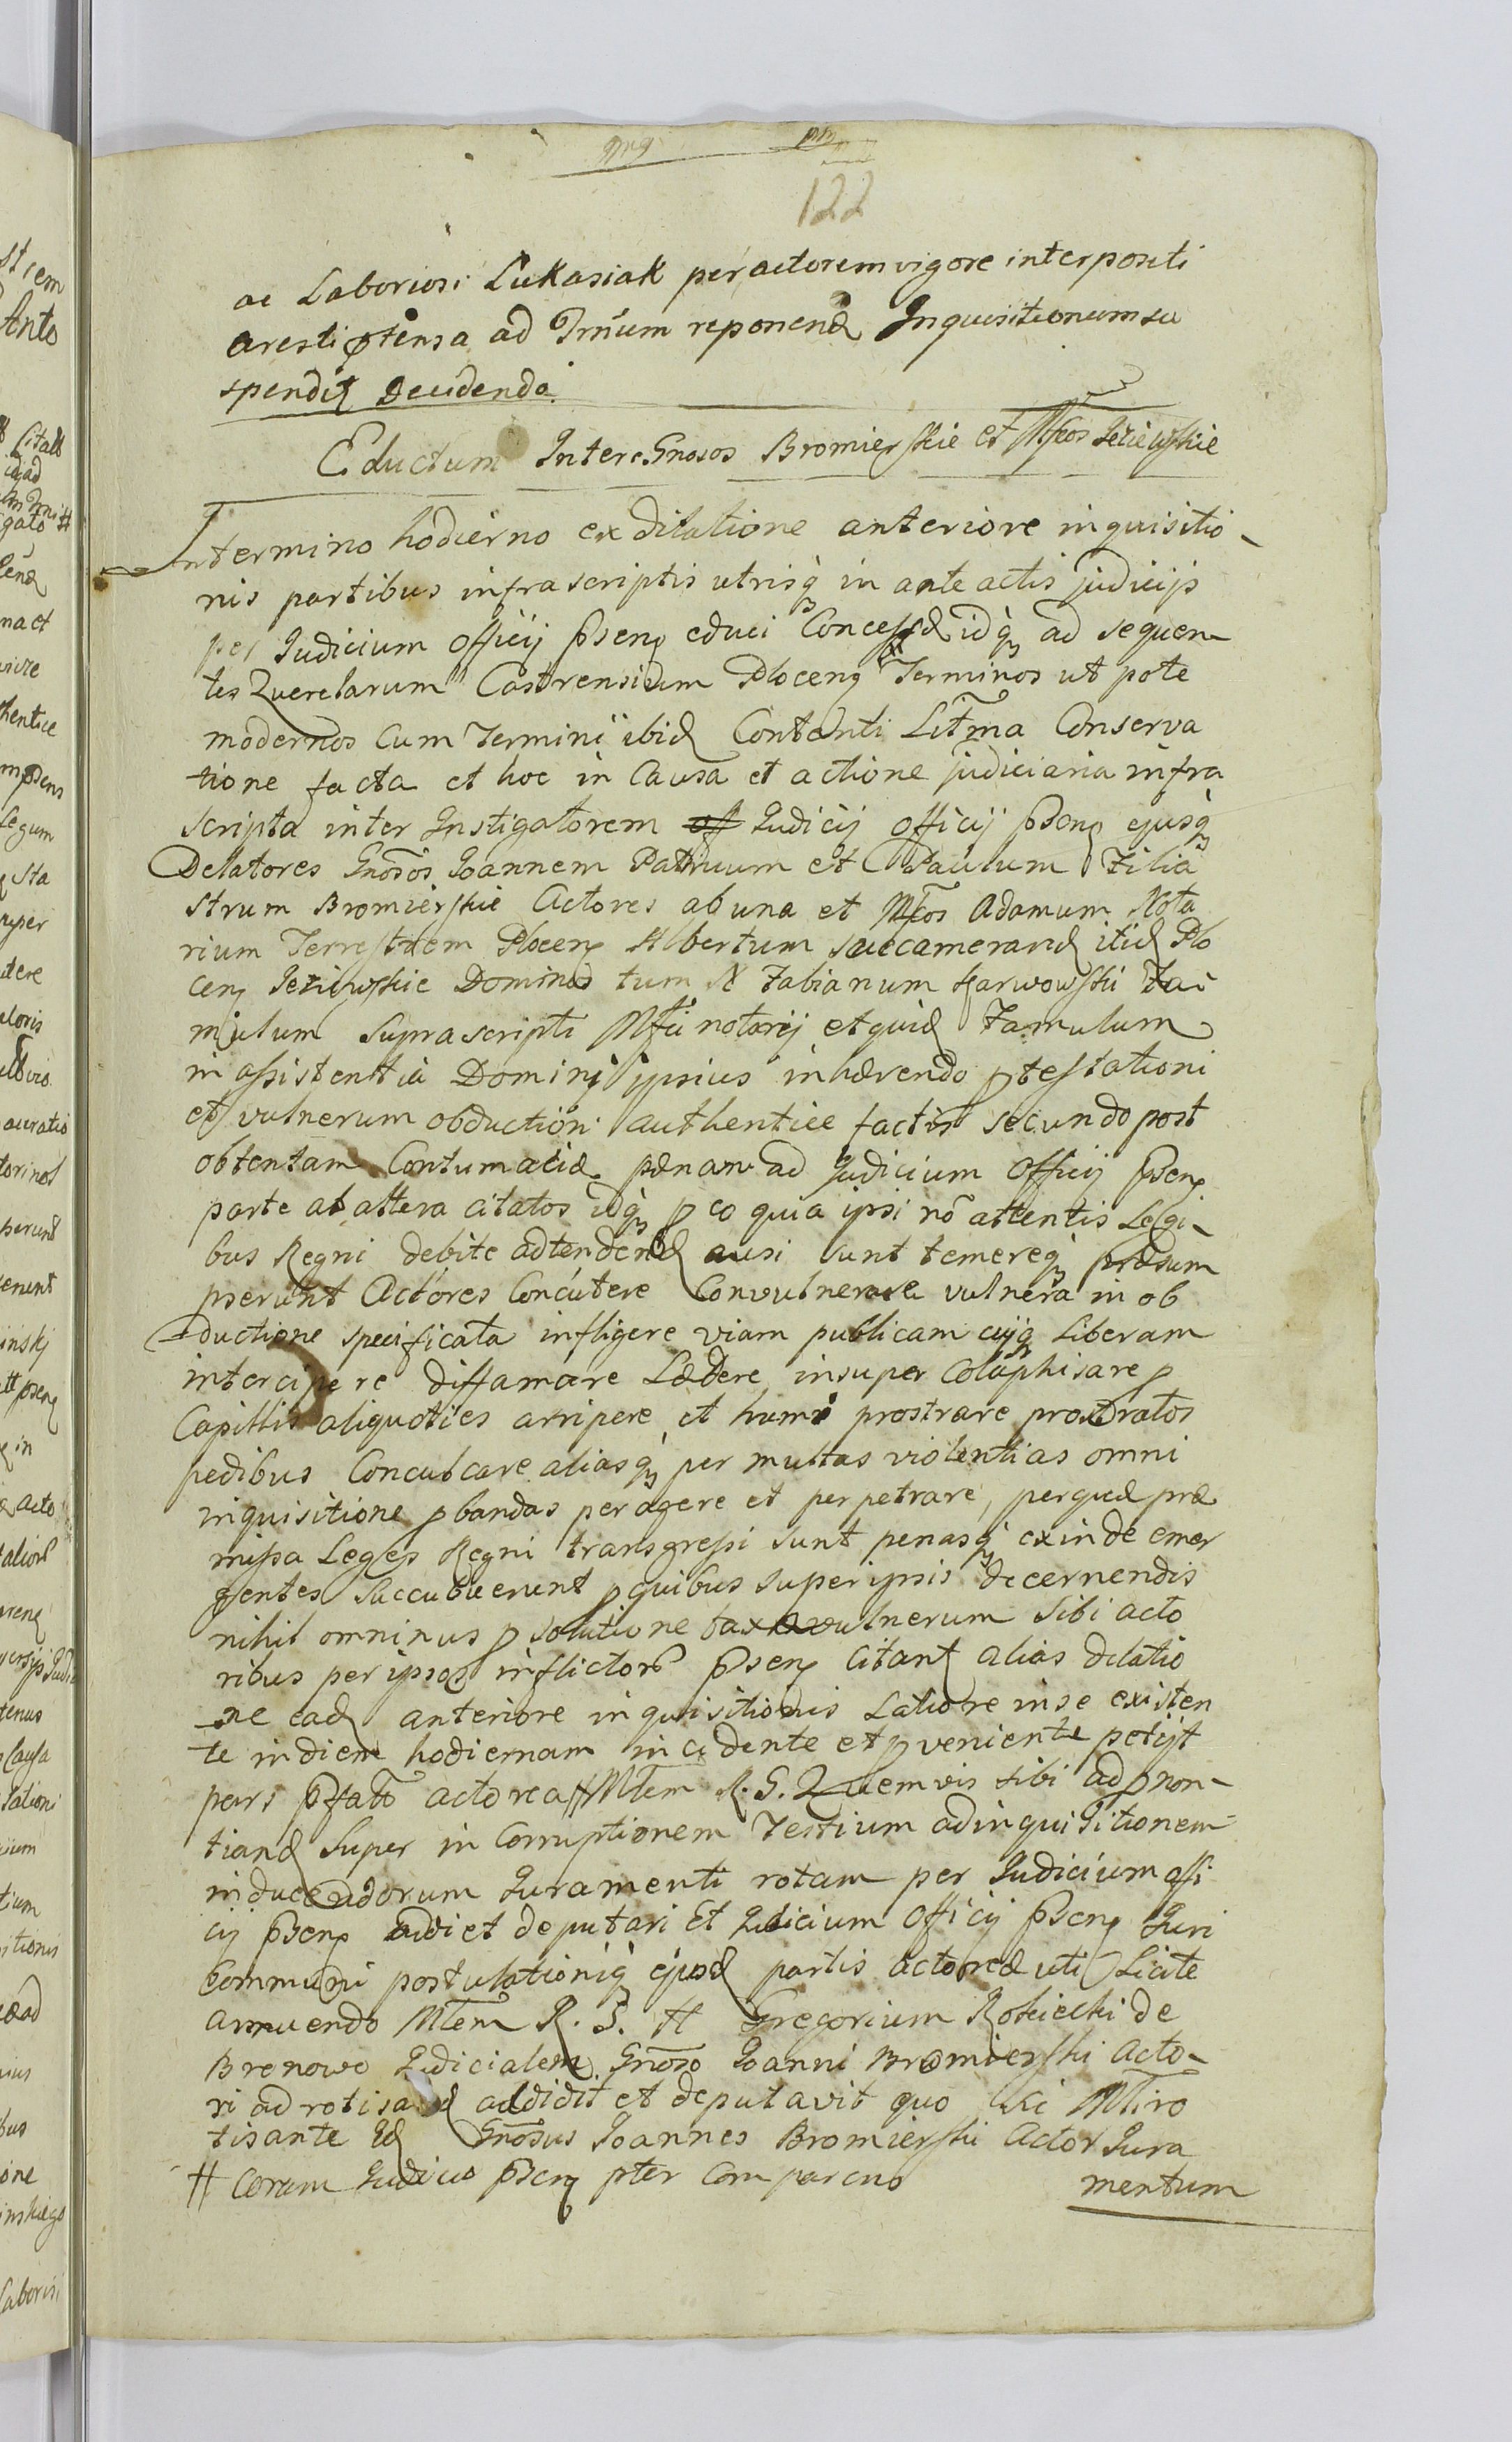 122
ac Laboriosi Lukasiak per actorem vigore interpositi
aresti ptensa ad Trnum reponend Inquisitionum su
spendit Decidenda
Eductum Inter Gnosos Bromierskie et Mfcos Jeziewskie
In termino hodierno ex dilatione anteriore inquisitio-
nis partibus infrascriptis utrisq in ante actis judicijs
per Judicium officij psenş educi Concessæ idq ad sequen-
tes Querelarum Castrensium Plocenş Terminos ut pote
modernos Cum Termini ibid Contenti Litma Conserva
tione facta et hoc in Causa et actione judiciaria infra
scripta inter Instigatorem Judicij officij psenş ejusq
Delatores Gnosos Joannem Patruum et Paulum Filia
strum Bromierskie Actores ab una et Mfcos Adamum Nota
rium Terrestrem Plocenş Albertum succamerarid itid Plo
cenş Jeziewskie Dominos tum N Fabianum Karwowski Fa
mulum suprascripti Mfci notarij et quid Famulum
in assistentia Dominj ipsius inhærendo ptestationi
et vulnerum obductioni authentice factis secundo post
obtentam Contumaciæ pænam ad Judicium Officij psenş
parte ab altera citatos idq p eo quia ipsi nō attentis Legi-
bus Regni debite adtendend ausi sunt temereq præsum
pserunt Actores Concutere Convulnerare vulnera in ob
ductione specificata infligere viam publicam cuiq Liberam
intercipere diffamare Lædere insuper Colaphisare p
Capillis aliquoties arripere et humi prostrare prostratos
pedibus Conculcare aliasq per multas violentias omni
inquisitione pbandas peragere et perpetrare, perquæ præ
missa Leges Regni transgressi sunt penasq exinde emer
gentes succubuerunt p quibus super ipsis decernendis
nihil ominus p solutione taxæ vulnerum sibi acto
ribus per ipsos inflictor psenş Citant alias dilatio
ne ead anteriore inquisitionis Latiore in se existen
te in diem hodiernam incidente et pveniente petijt
pars pfatt actorea # Mtem R. G. Quemvis sibi ad pnon-
tiand super in Corruptionem Testium ad inquisitionem
inducendorum Juramenti rotam per Judicium offi
cij psenş addi et deputari Et Judicium Officij psenş Juri
Communi postulationiq ejusd partis actoreæ uti Licite
annuendo Mtem R. G. H Gregorium Rokicki de
Brenowo Judicialem Gnoso Joanni Bromierski Acto-
ri ad rotisand addidit et deputavit quo sic Mtiro
tisante Id Gnosus Joannes Bromierski Actor Jura
# Coram Judicio psenş pter Comparens mentum